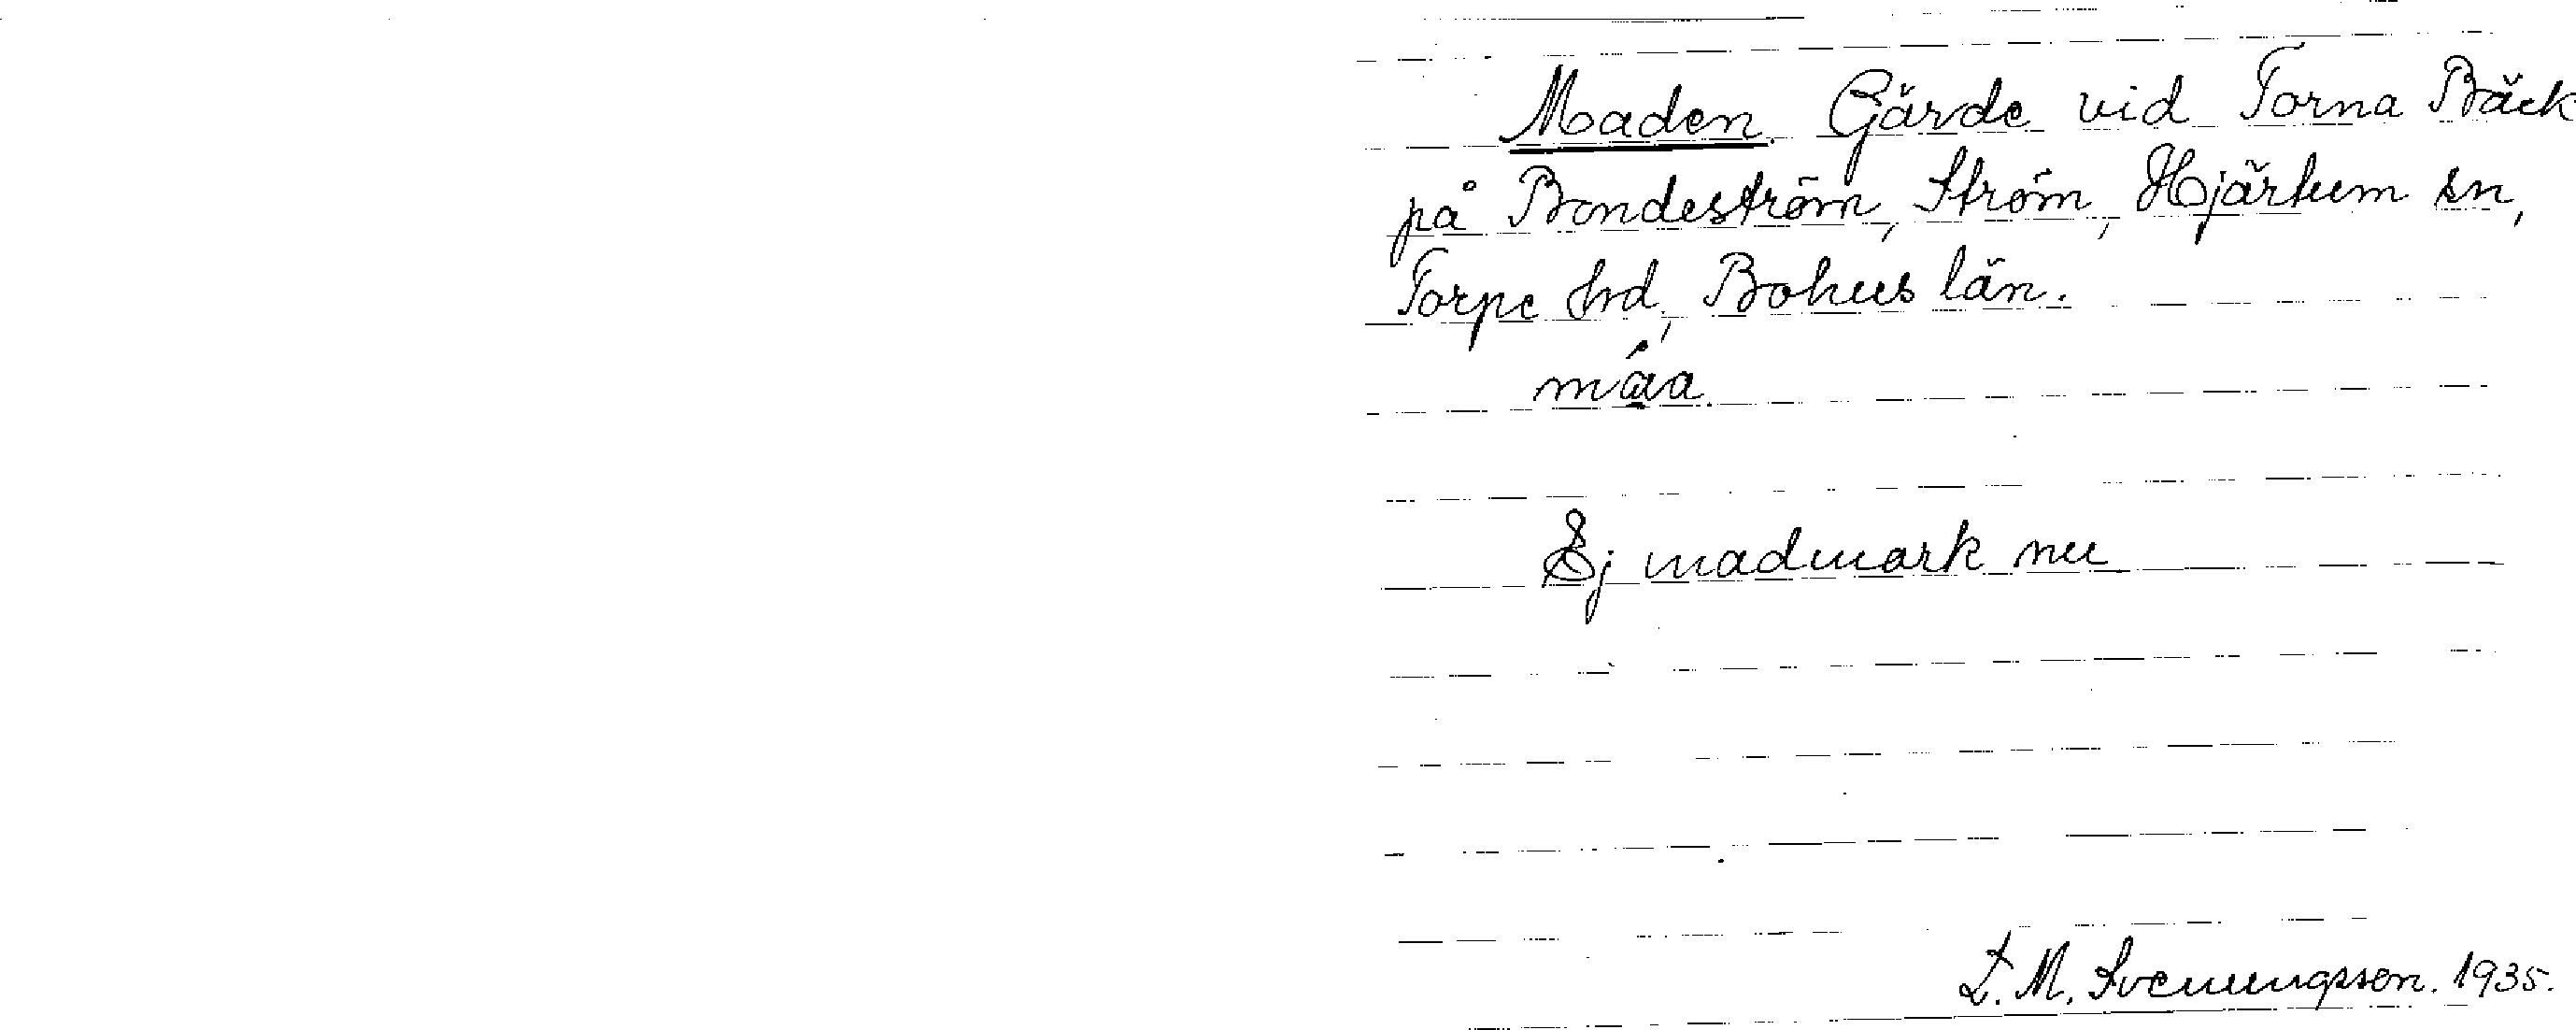 Maden. Gärde vid Torna Bäck
på Bondeström, Ström, Hjärtum sn,
Torpe hd, Bohus län.
måa.
Ej madmark nu
L. M. Svenungsson. 1935.